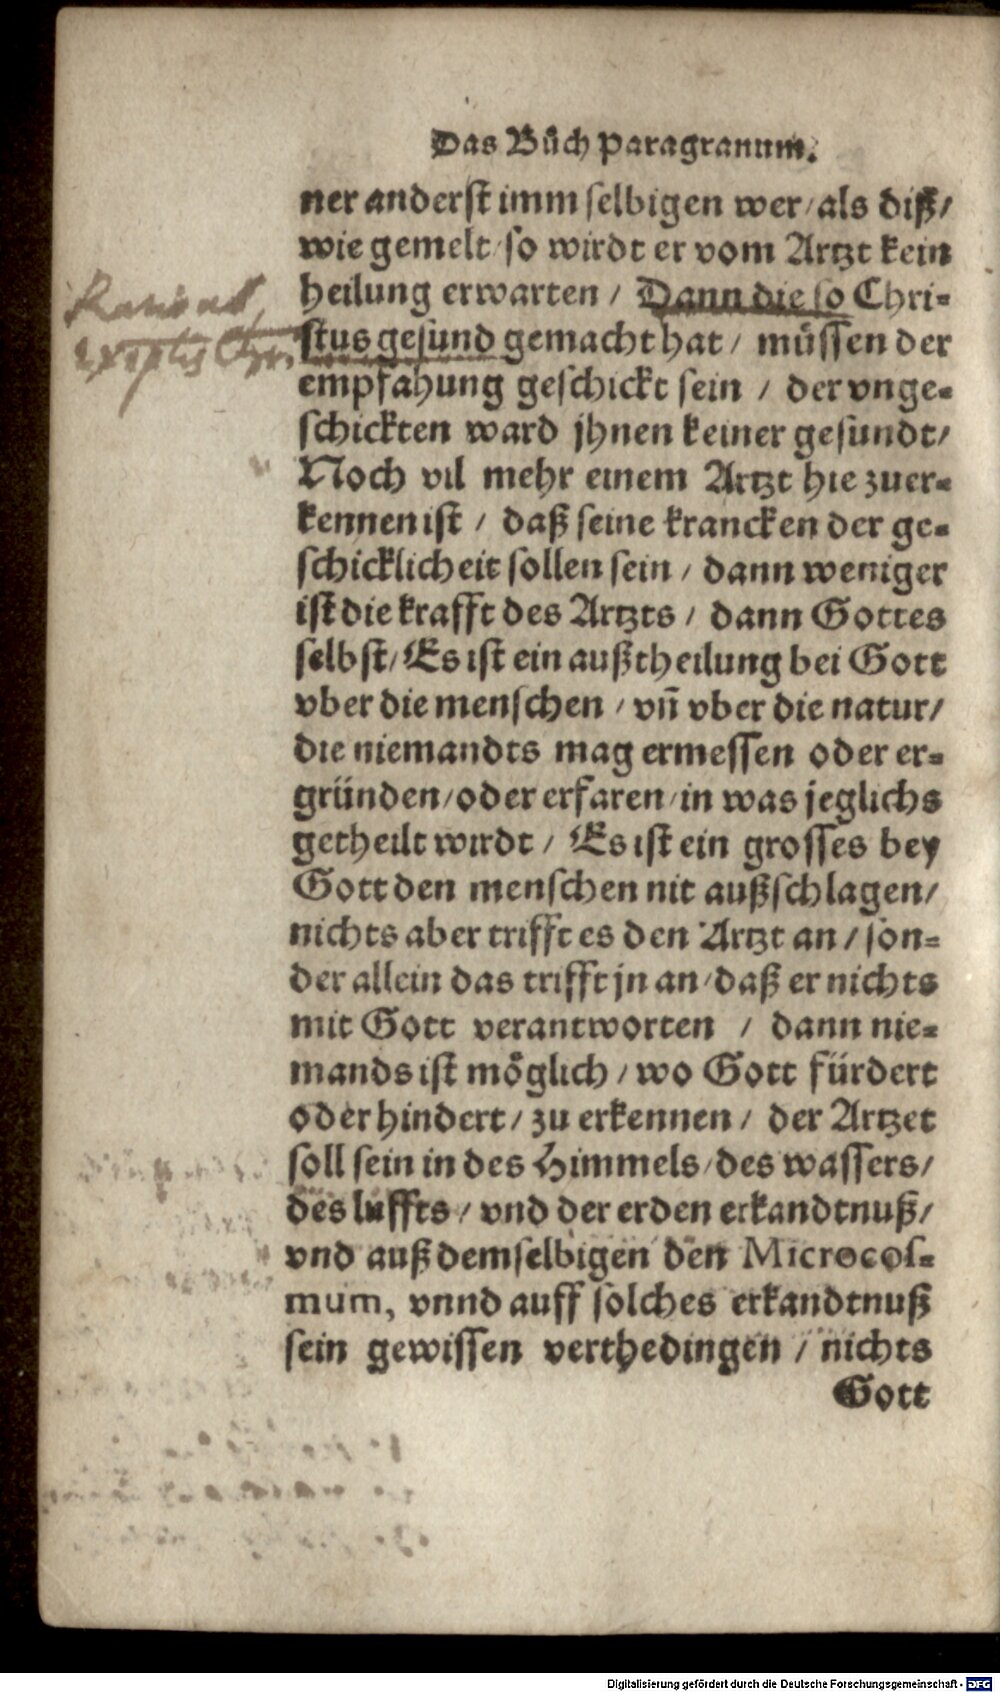 Das Bůch Paragranum.
ner anderst imm selbigen wer / als diß /
wie gemelt / so wirdt er vom Artzt kein
heilung erwarten / Dann die so Chri⸗
stus gesund gemacht hat / müssen der
empfahung geschickt sein / der vnge⸗
schickten ward jhnen keiner gesundt /
Noch vil mehr einem Artzt hie zuer⸗
kennen ist / daß seine krancken der ge⸗
schicklicheit sollen sein / dann weniger
ist die krafft des Artzts / dann Gottes
selbst / Es ist ein außtheilung bei Gott
vber die menschen / vñ vber die natur /
die niemandts mag ermessen oder er⸗
gründen / oder erfaren / in was jeglichs
getheilt wirdt / Es ist ein grosses bey
Gott den menschen nit außschlagen /
nichts aber trifft es den Artzt an / son⸗
der allein das trifft jn an / daß er nichts
mit Gott verantworten / dann nie⸗
mands ist möglich / wo Gott fürdert
oder hindert / zu erkennen / der Artzet
soll sein in des Himmels / des wassers /
des luffts / vnd der erden erkandtnuß /
vnd auß demselbigen den Microcos⸗
mum, vnnd auff solches erkandtnuß
sein gewissen verthedingen / nichts
Gott
Digitalisierung gefördert durch die Deutsche Forschungsgemeinschaft - DFG